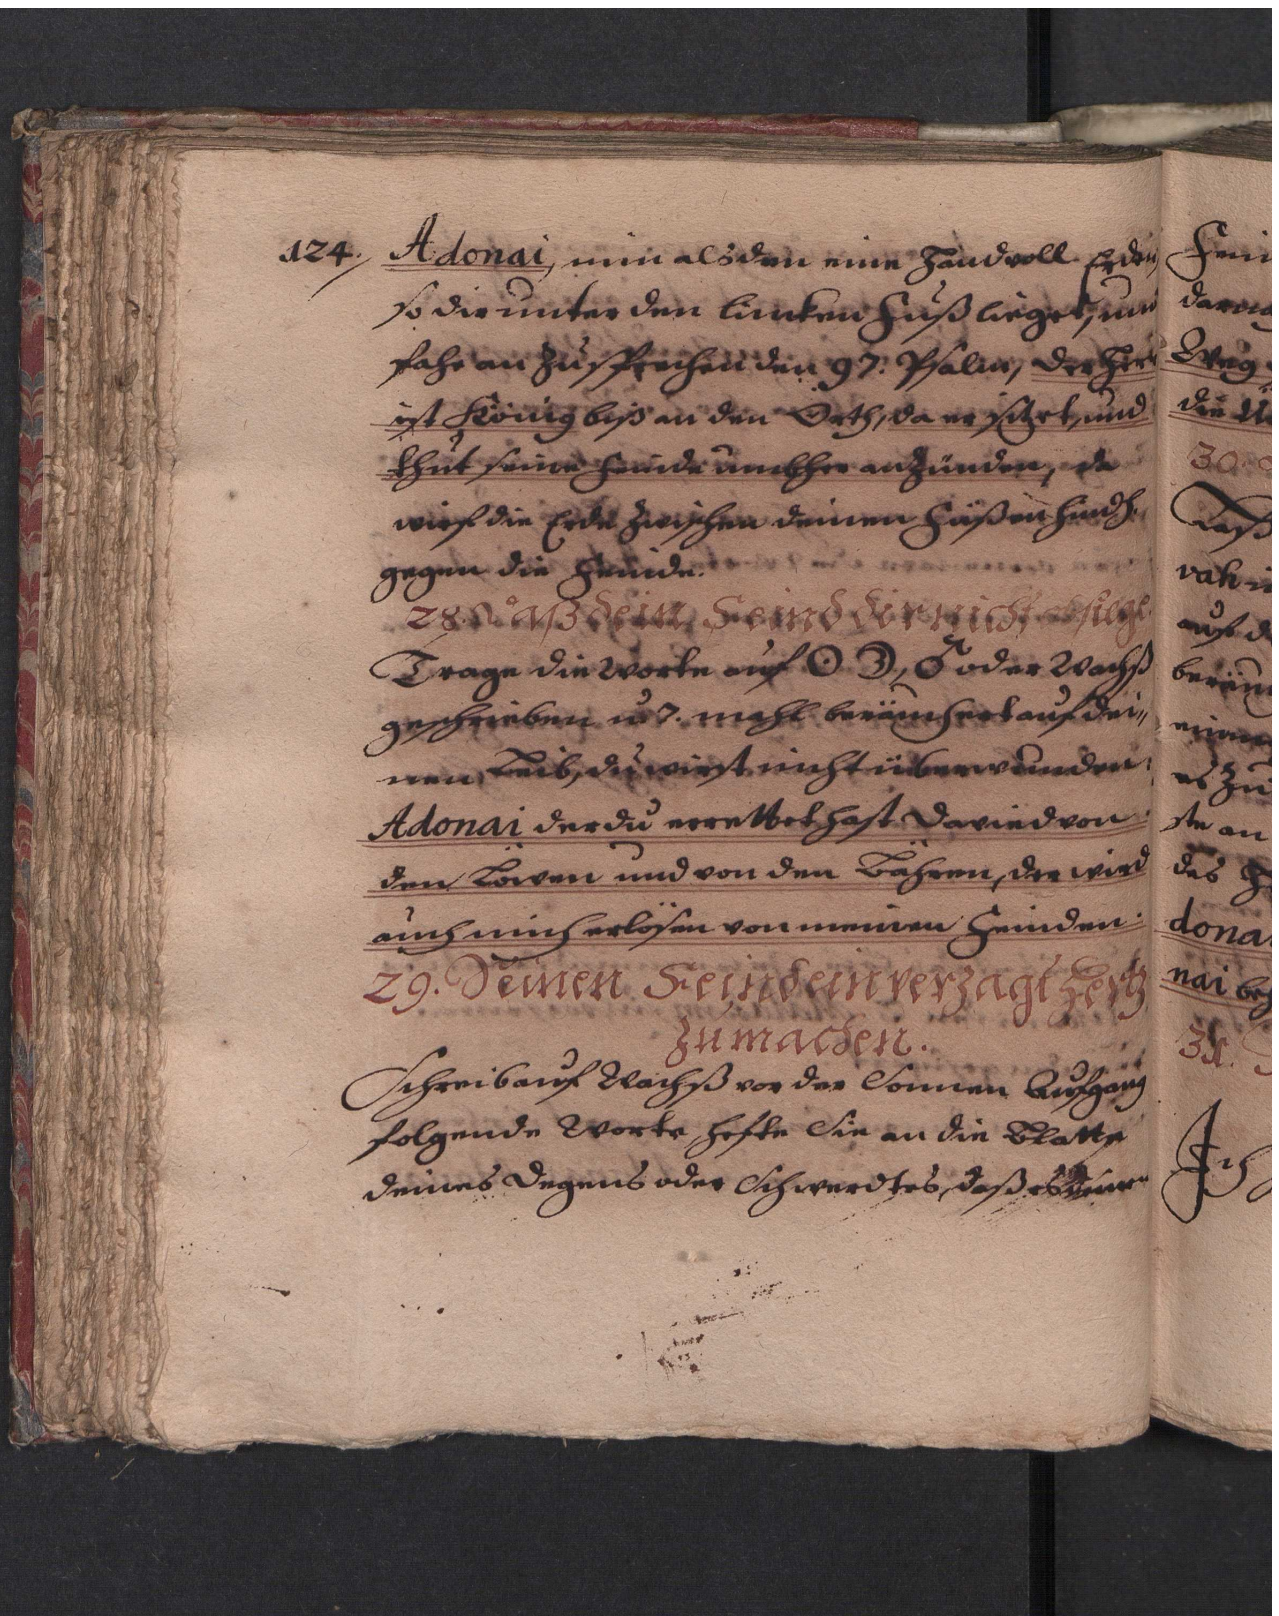 124. Adonai, nim alsden eine Handvoll Erden
so dir unter den lincken Fuß lieget, und
fahe an zu sprechen den 97. Psalm, der Herr
ist König biß an den Orth, da er sitzet, und
thut seine Feinde umbher anzünden, da
wirf die Erde zwischen deinen Füßen hindh.
gegen die Feinde.
28. Daß dein Feind dir nicht obsiege
Trage die Worte auf ☉ ☽, ♂ oder Wachß
geschrieben u. 7. mahl beräuchert auf dei„
nen Leib, du wirst nicht überwunden:
Adonai der du errettet hast David von
den Löwen und von den Bähren, der wird
auch mich erlösen von meinen Feinden:
29. Deinen Feind ein verzagt Hertz
zu machen.
Schreib auf Wachß vor der Sonnen Aufgang
folgende Worte hefte Sie an die Platte
deines Degens oder Schwerdtes, daß es deine
Fein
darn
Weg
die
30.
Laß
auf d
beräu
einem
es zu
ste an
des H
donai
nai
31.
Ich